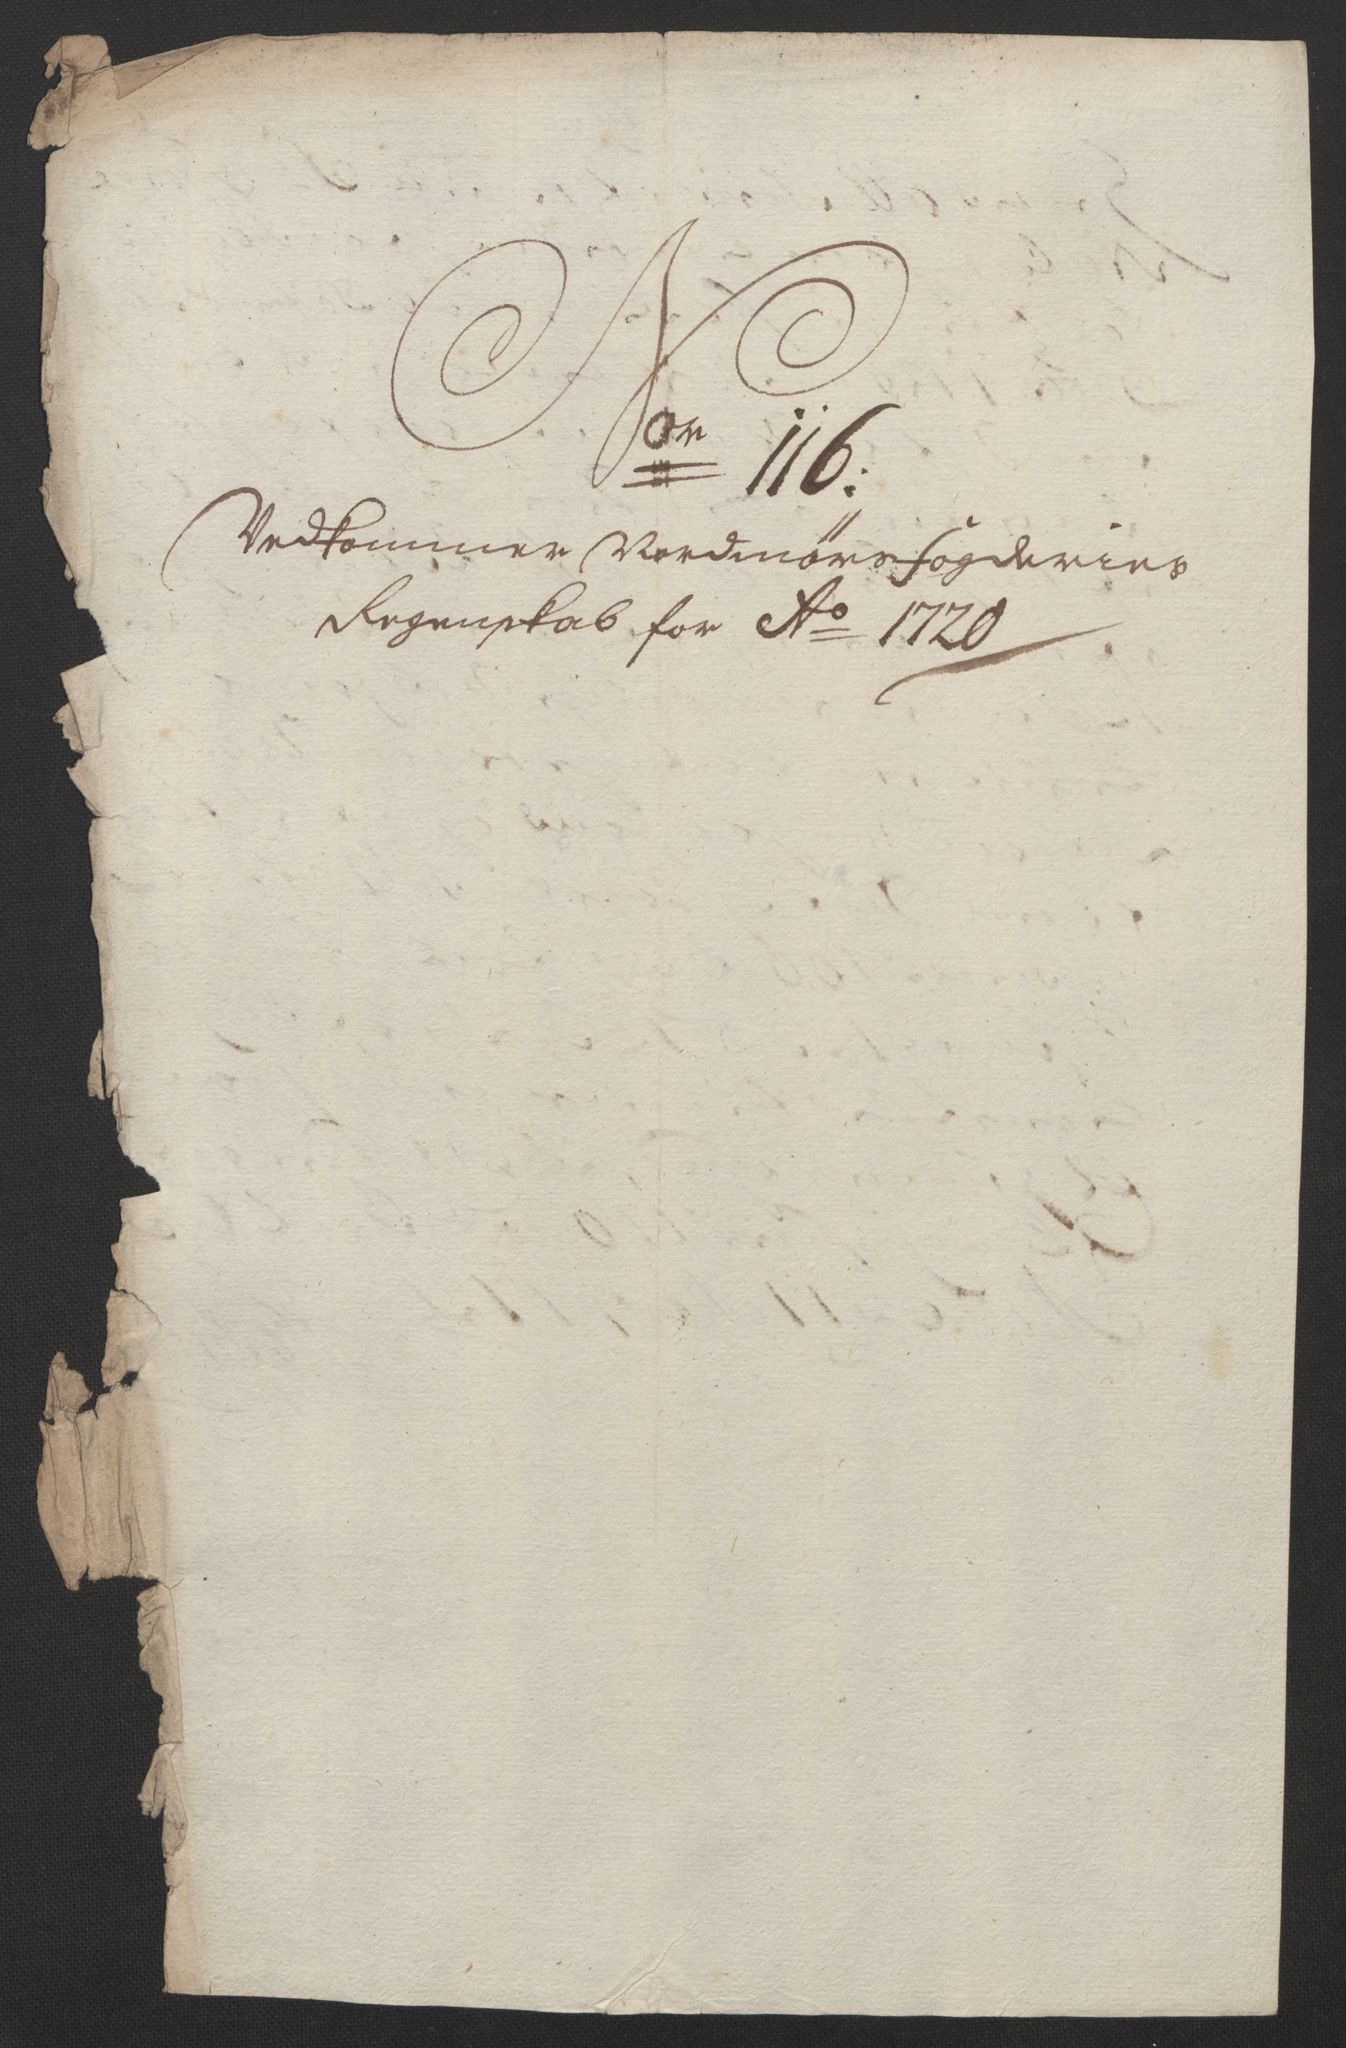 Nor 116:
Vedkommer Nordmørs fogderies
Regenskab for Ao 1720